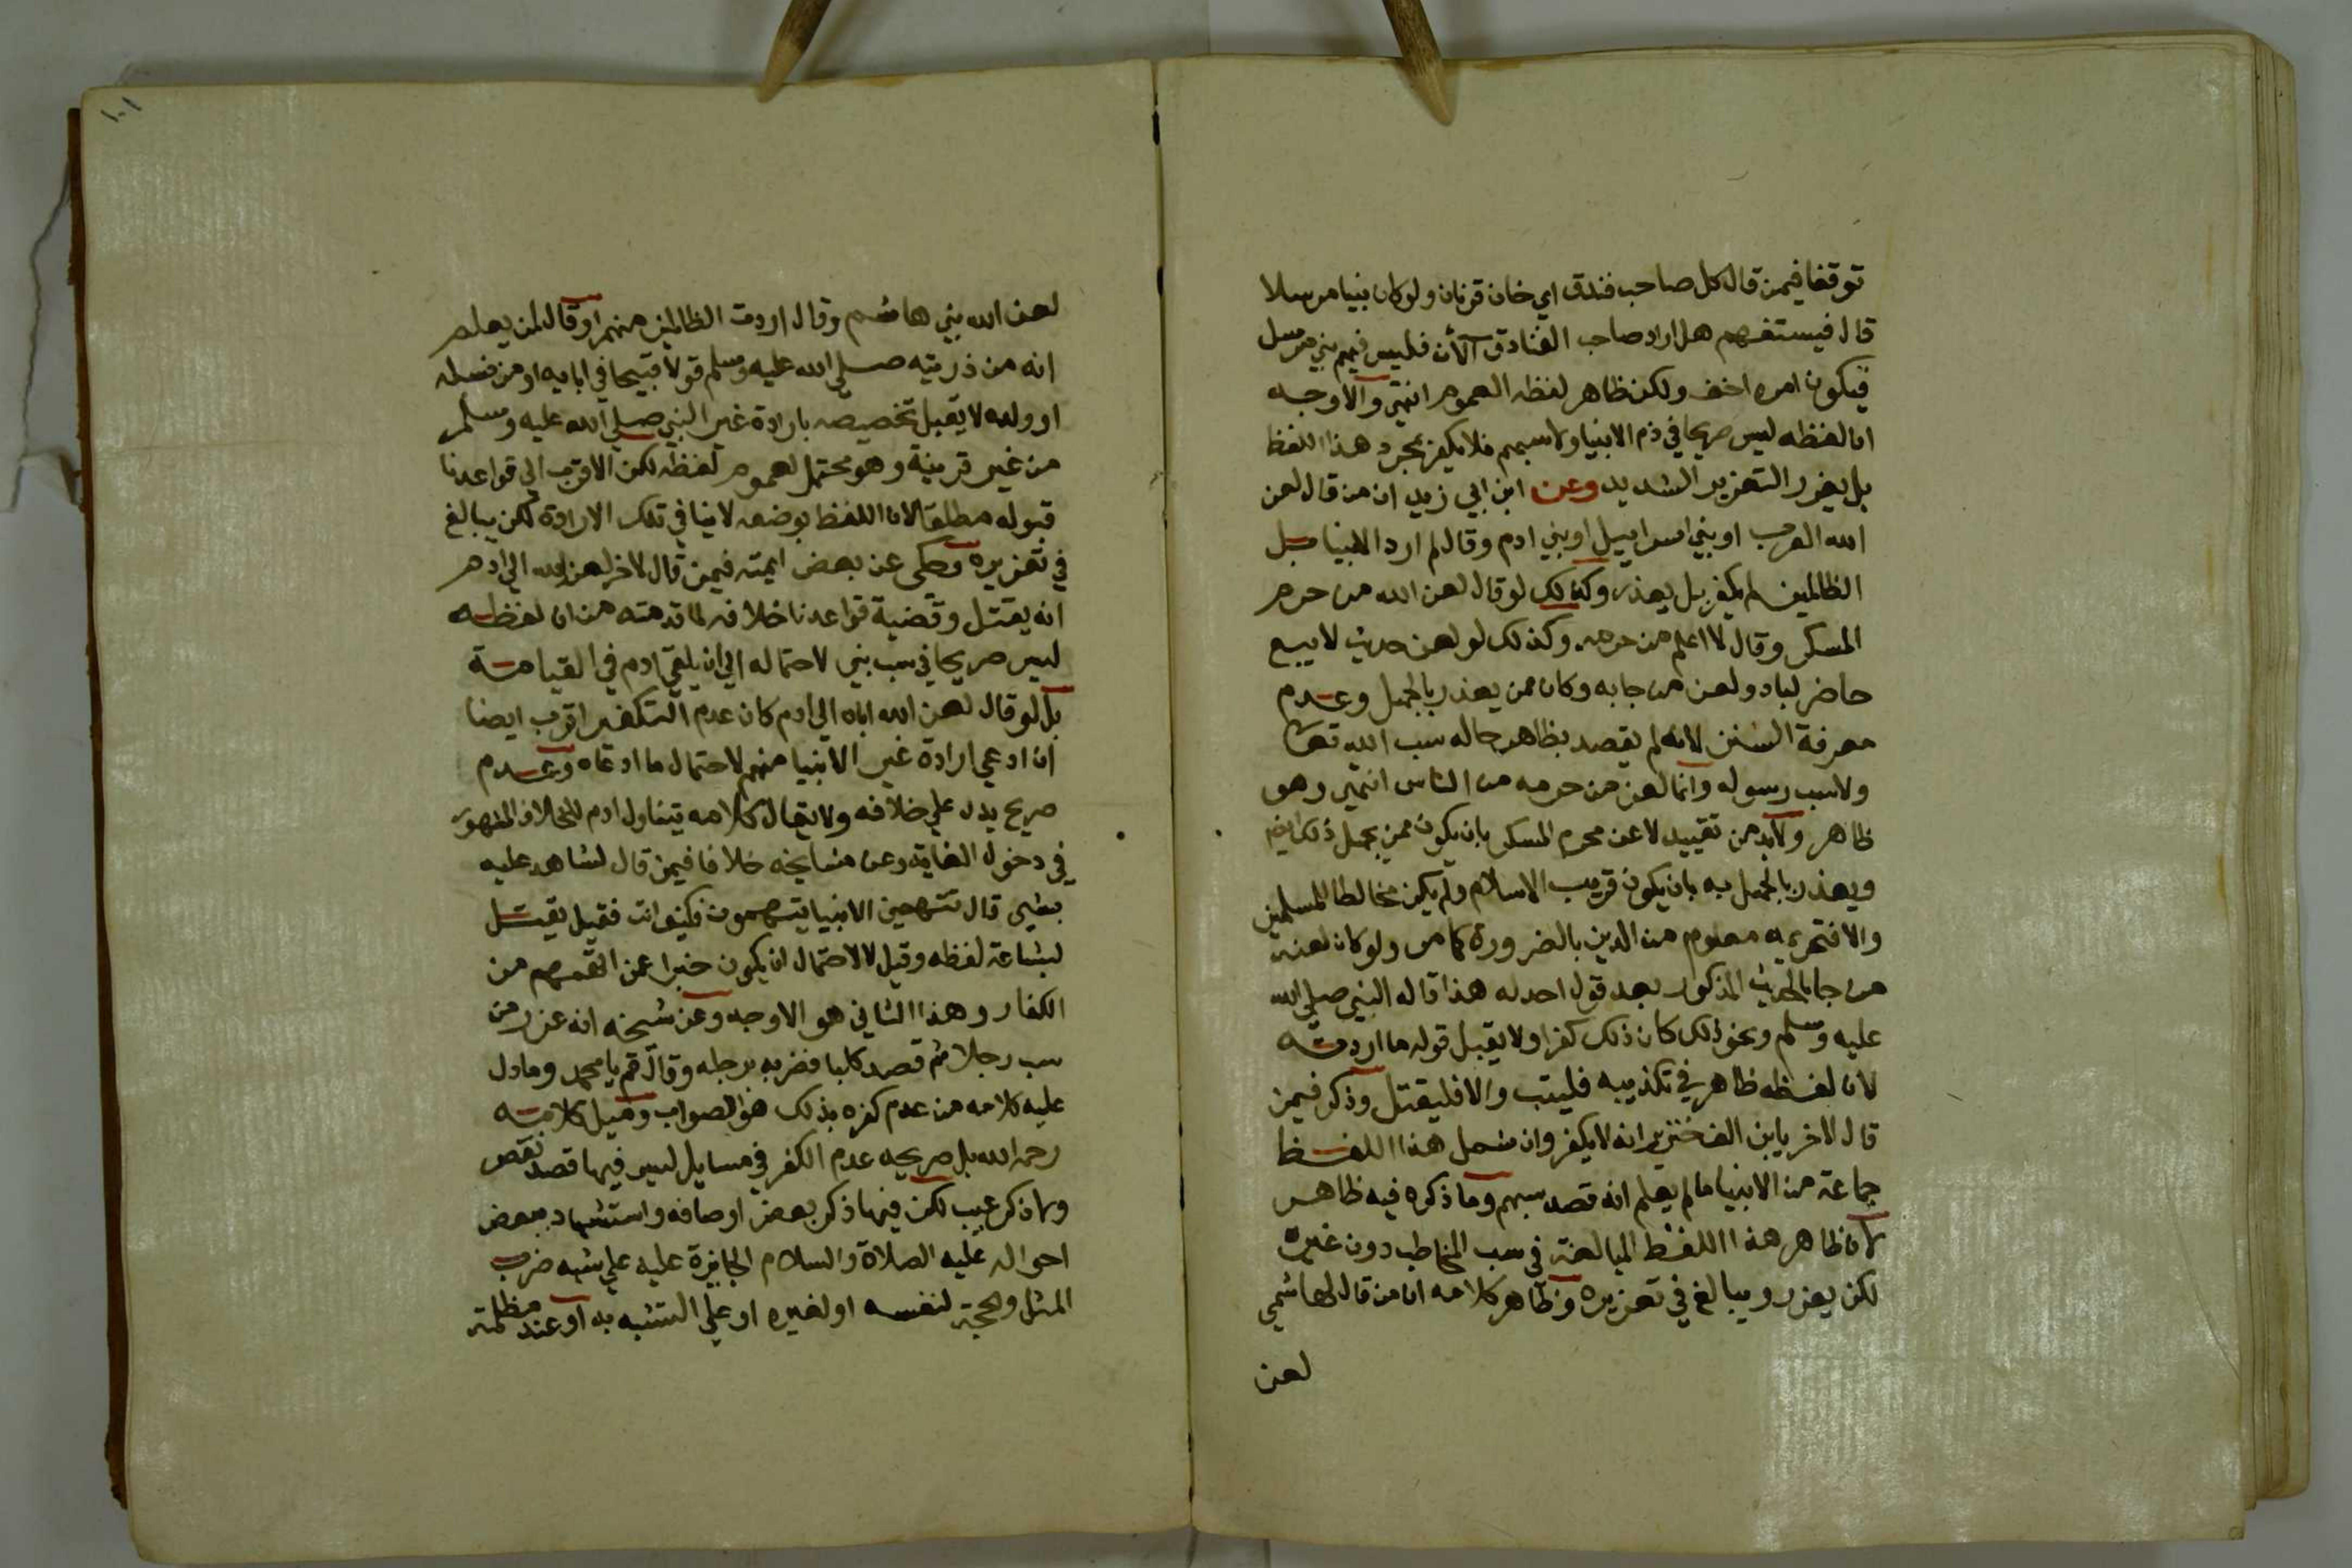 توقفا فيمن قال كل صاحب فندق اي خان قرنان ولو كان نبيا مرسلا
قال فيستفهم هل اراد صاحب الفنادق الآن فليس فيهم نبي مرسل
فيكون امره اخف ولكن ظاهر لفظه العموم انتهى والاوجه
ان لفظه ليس صريحا في ذم الانبيا ولا سبهم فلا يكفر بمجرد هذا اللفظ
بل يعزر التعزير الشديد وعن ابن ابي زيد ان من قال لعن
الله العرب او بني اسراييل او بني ادم وقال لم ارد الانبيا بل
الظالمين لم يكفر بل يعذر وكذلك لو قال لعن الله من حرم
المسكر وقال لا اعلم من حرمه وكذلك لو لعن حديث لا يبع
حاضر لباد ولعن من جا به وكان ممن يعذر بالجهل وعدم
معرفة السنن لانه لم يقصد بظاهر حاله سب الله تعا
ولا سب رسوله وانما لعن من حرمه من الناس انتهى وهو
ظاهر ولابد من تقييد لاعن محرم المسكر بان يكون ممن يجهل ذلك
ويعذر بالجهل به بان يكون قريب الاسلام ولم يكن مخالطا للمسلمين
والا فتحريمه معلوم من الدين بالضرورة كما مر ولو كان لعنه
من جا بالحديث المذكور بعد قول احد له هذا قاله النبي صلى الله
عليه وسلم ونحو ذلك كان ذلك كفرا ولا يقبل قوله ما اردته
لان لفظه ظاهر في تكذيبه فليتب والا فليقتل وذكر فيمن
قال لاخر يابن الف خنزير انه لا يكفر وان شمل هذا اللفظ
جماعة من الانبيا ما لم يعلم انه قصد سبهم وما ذكره فيه ظاهر
لان ظاهر هذا اللفظ المبالغة في سب المخاطب دون غيره
لكن يعزر ويبالغ في تعزيره وظاهر كلامه ان من قال لهاشمي
لعن
١٠١
لعن الله بني هاشم وقال اردت الظالمين منهم او قال لمن يعلم
انه من ذريته صلى الله عليه وسلم قولا قبيحا في ابايه او من نسله
او ولده لا يقبل تخصيصه بارادة غير النبي صلي الله عليه وسلم
من غير قرينة وهو محتمل لعموم لفظه لكن الاقرب الى قواعدنا
قبوله مطلقا لان اللفظ بوضعه لا ينافي تلك الارادة لكن يبالغ
في تعزيره وحكى عن بعض ايمته فيمن قال لاخر لعن الله الي ادم
انه يقتل وقضية قواعدنا خلافه لما قدمته من ان لفظه
ليس صريحا في سب نبي لاحتماله الي ان يلقى ادم في القيامة
بل لو قال لعن الله اباه الي ادم كان عدم التكفير اقرب ايضا
ان ادعي ارادة غير الانبيا منهم لاحتمال ما ادعاه وعدم
صريح يدل علي خلافه ولا يقال كلامه يتناول ادم للخلاف المشهور
في دخول الغاية وعن مشايخه خلافا فيمن قال لشاهد عليه
بشي قال تتهمني الانبيا يتهمون فكيف انت فقيل يقتل
لبشاعة لفظه وقيل لا لاحتمال ان يكون خبرا عمن اتهمهم من
الكفار وهذا الثاني هو الاوجه وعن شيخه انه عزر من
سب رجلا ثم قصد كلبا فضربه برجله وقال قم يا محمد وما دل
عليه كلامه من عدم كفره بذلك هو الصواب وميل كلامه
رحمه الله بل صريحه عدم الكفر في مسايل ليس فيها قصد نقص
ولا ذكر عيب لكن فيها ذكر بعض اوصافه واستشهاد ببعض
احواله عليه الصلاة والسلام الجايزة عليه علي شبه ضرب
المثل والحجة لنفسه او لغيره او علي التشبه به او عند مظلمة